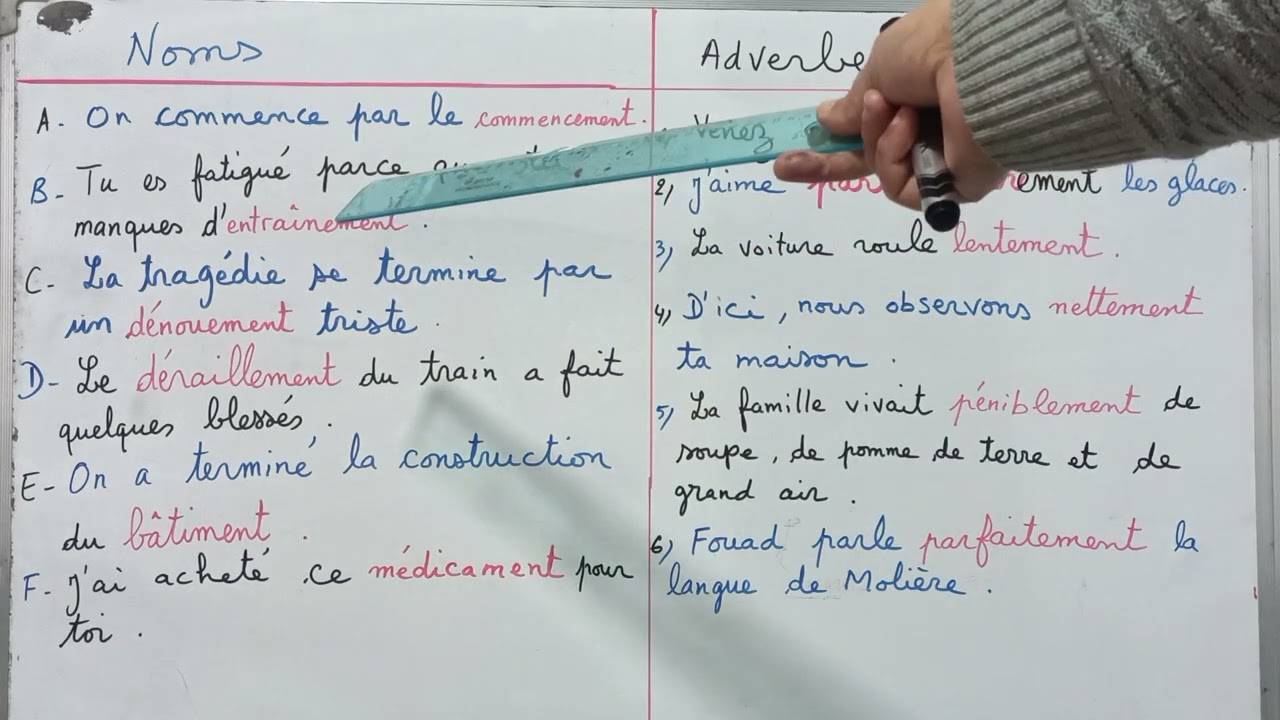 Noms
A. On commence par le commencement.
B- Tu es fatigué parce
manques d'entraînement.
C- La tragédie se termine par
un dénouement triste.
D- Le déraillement du train a fait
quelques blessés.
E- On a terminé la construction
du bâtiment.
F. J'ai acheté ce médicament pour
toi.
Adverbe
Venez
2) J'aime les glaces.
3) La voiture roule lentement.
4) D'ici, nous observons nettement
ta maison.
5) La famille vivait péniblement de
soupe, de pomme de terre et de
grand air.
6) Fouad parle parfaitement la
langue de Molière.